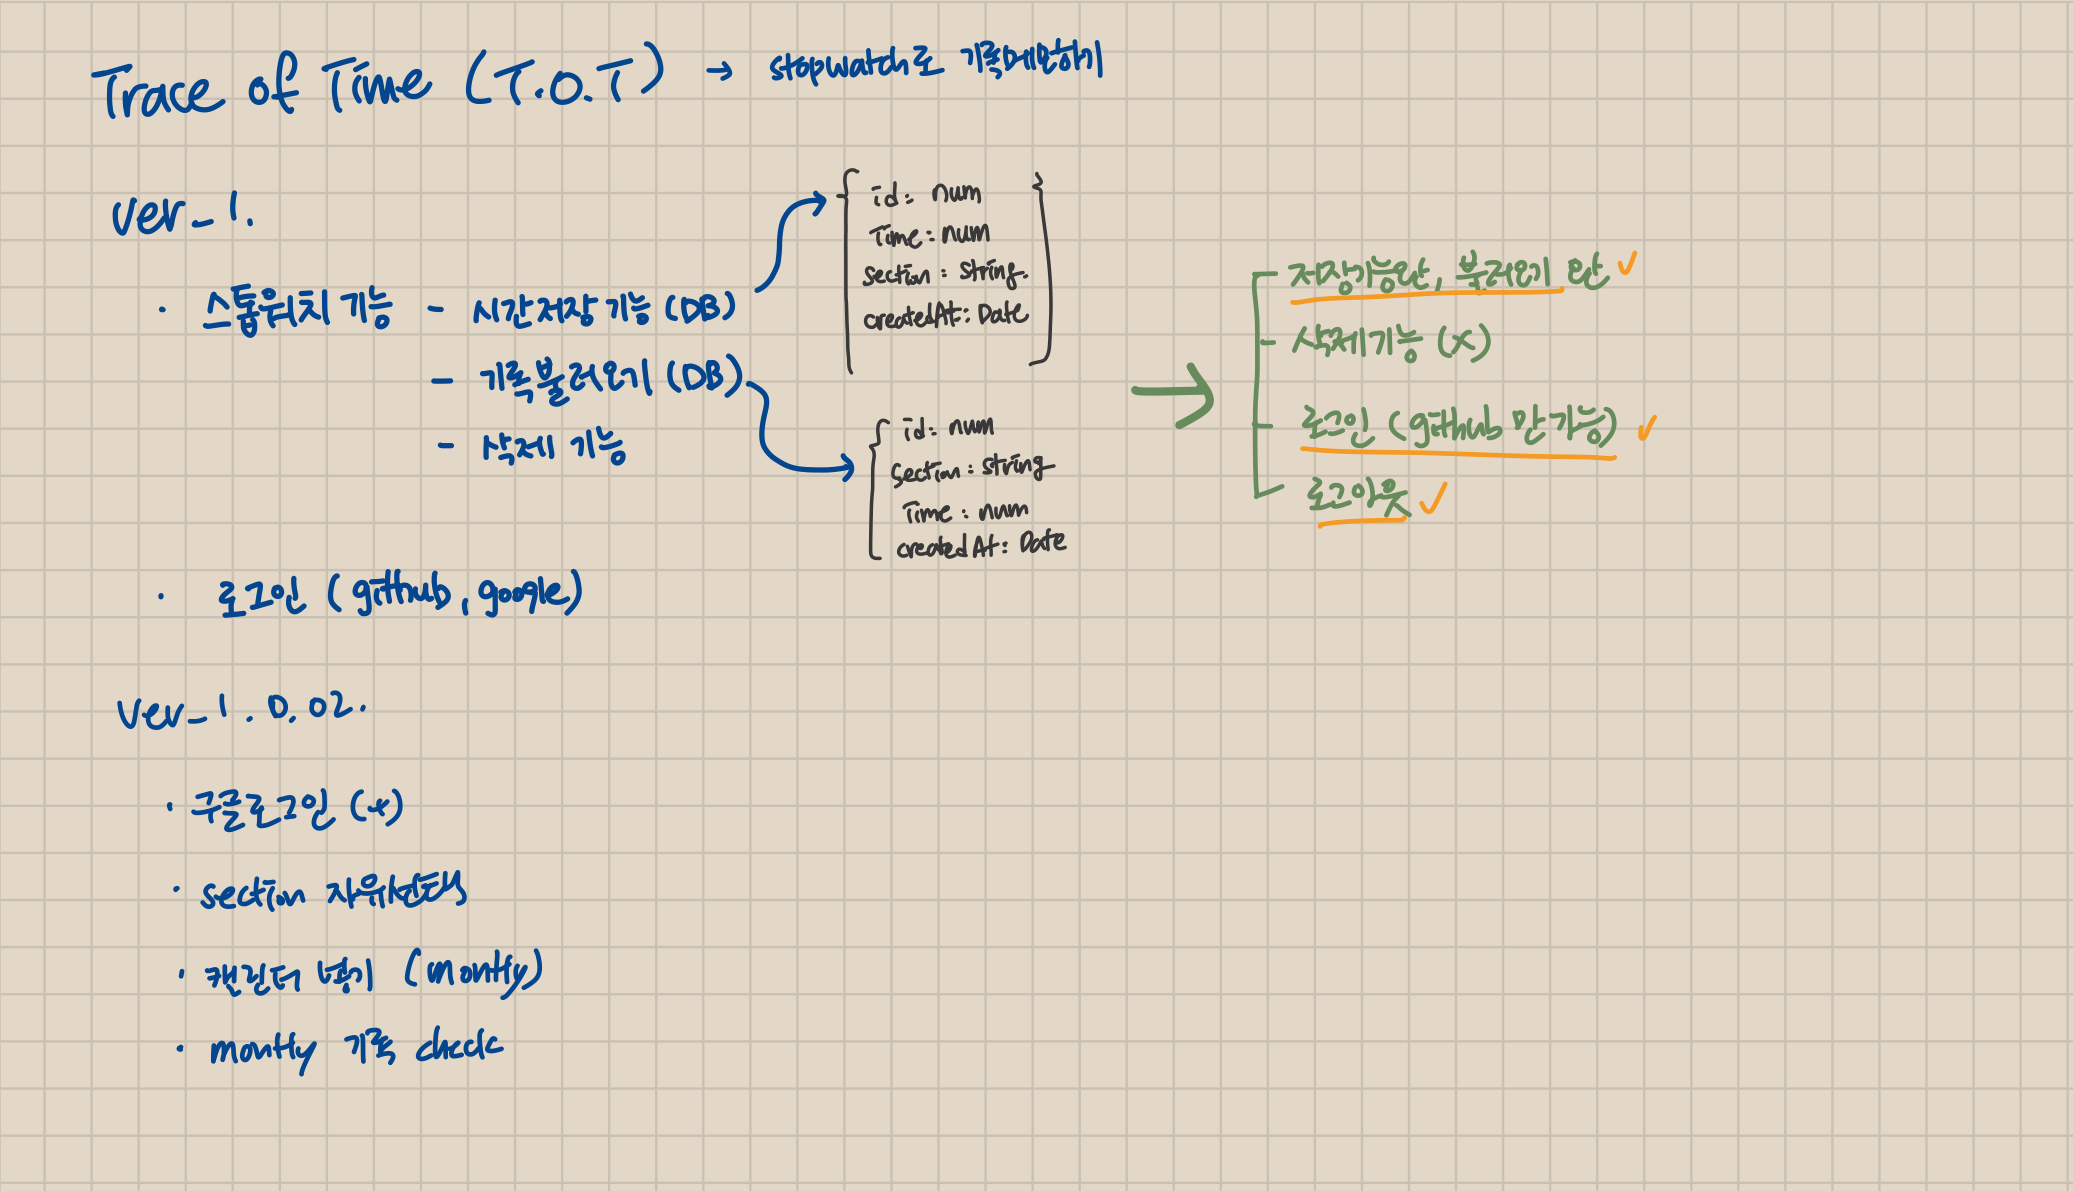 Trace of Time (T.O.T) → stopwatch로 기록메모하기
ver_1.
· 스톱워치 기능 - 시간저장 기능 (DB)
- 기록불러오기 (DB)
- 삭제 기능
{ id: num }
Time: num
section: string.
createdAt: Date
{ id: num
section: string
Time: num
createdAt: Date
→
- 저장기능만, 불러오기 만 ✓
- 삭제기능 (x)
- 로그인 (github 만 가능) ✓
로그아웃 ✓
· 로그인 (github, google)
ver_1.0.02.
· 구글로그인 (x)
· section 자유선택
· 캘린더 넣기 (montly)
· montly 기록 check